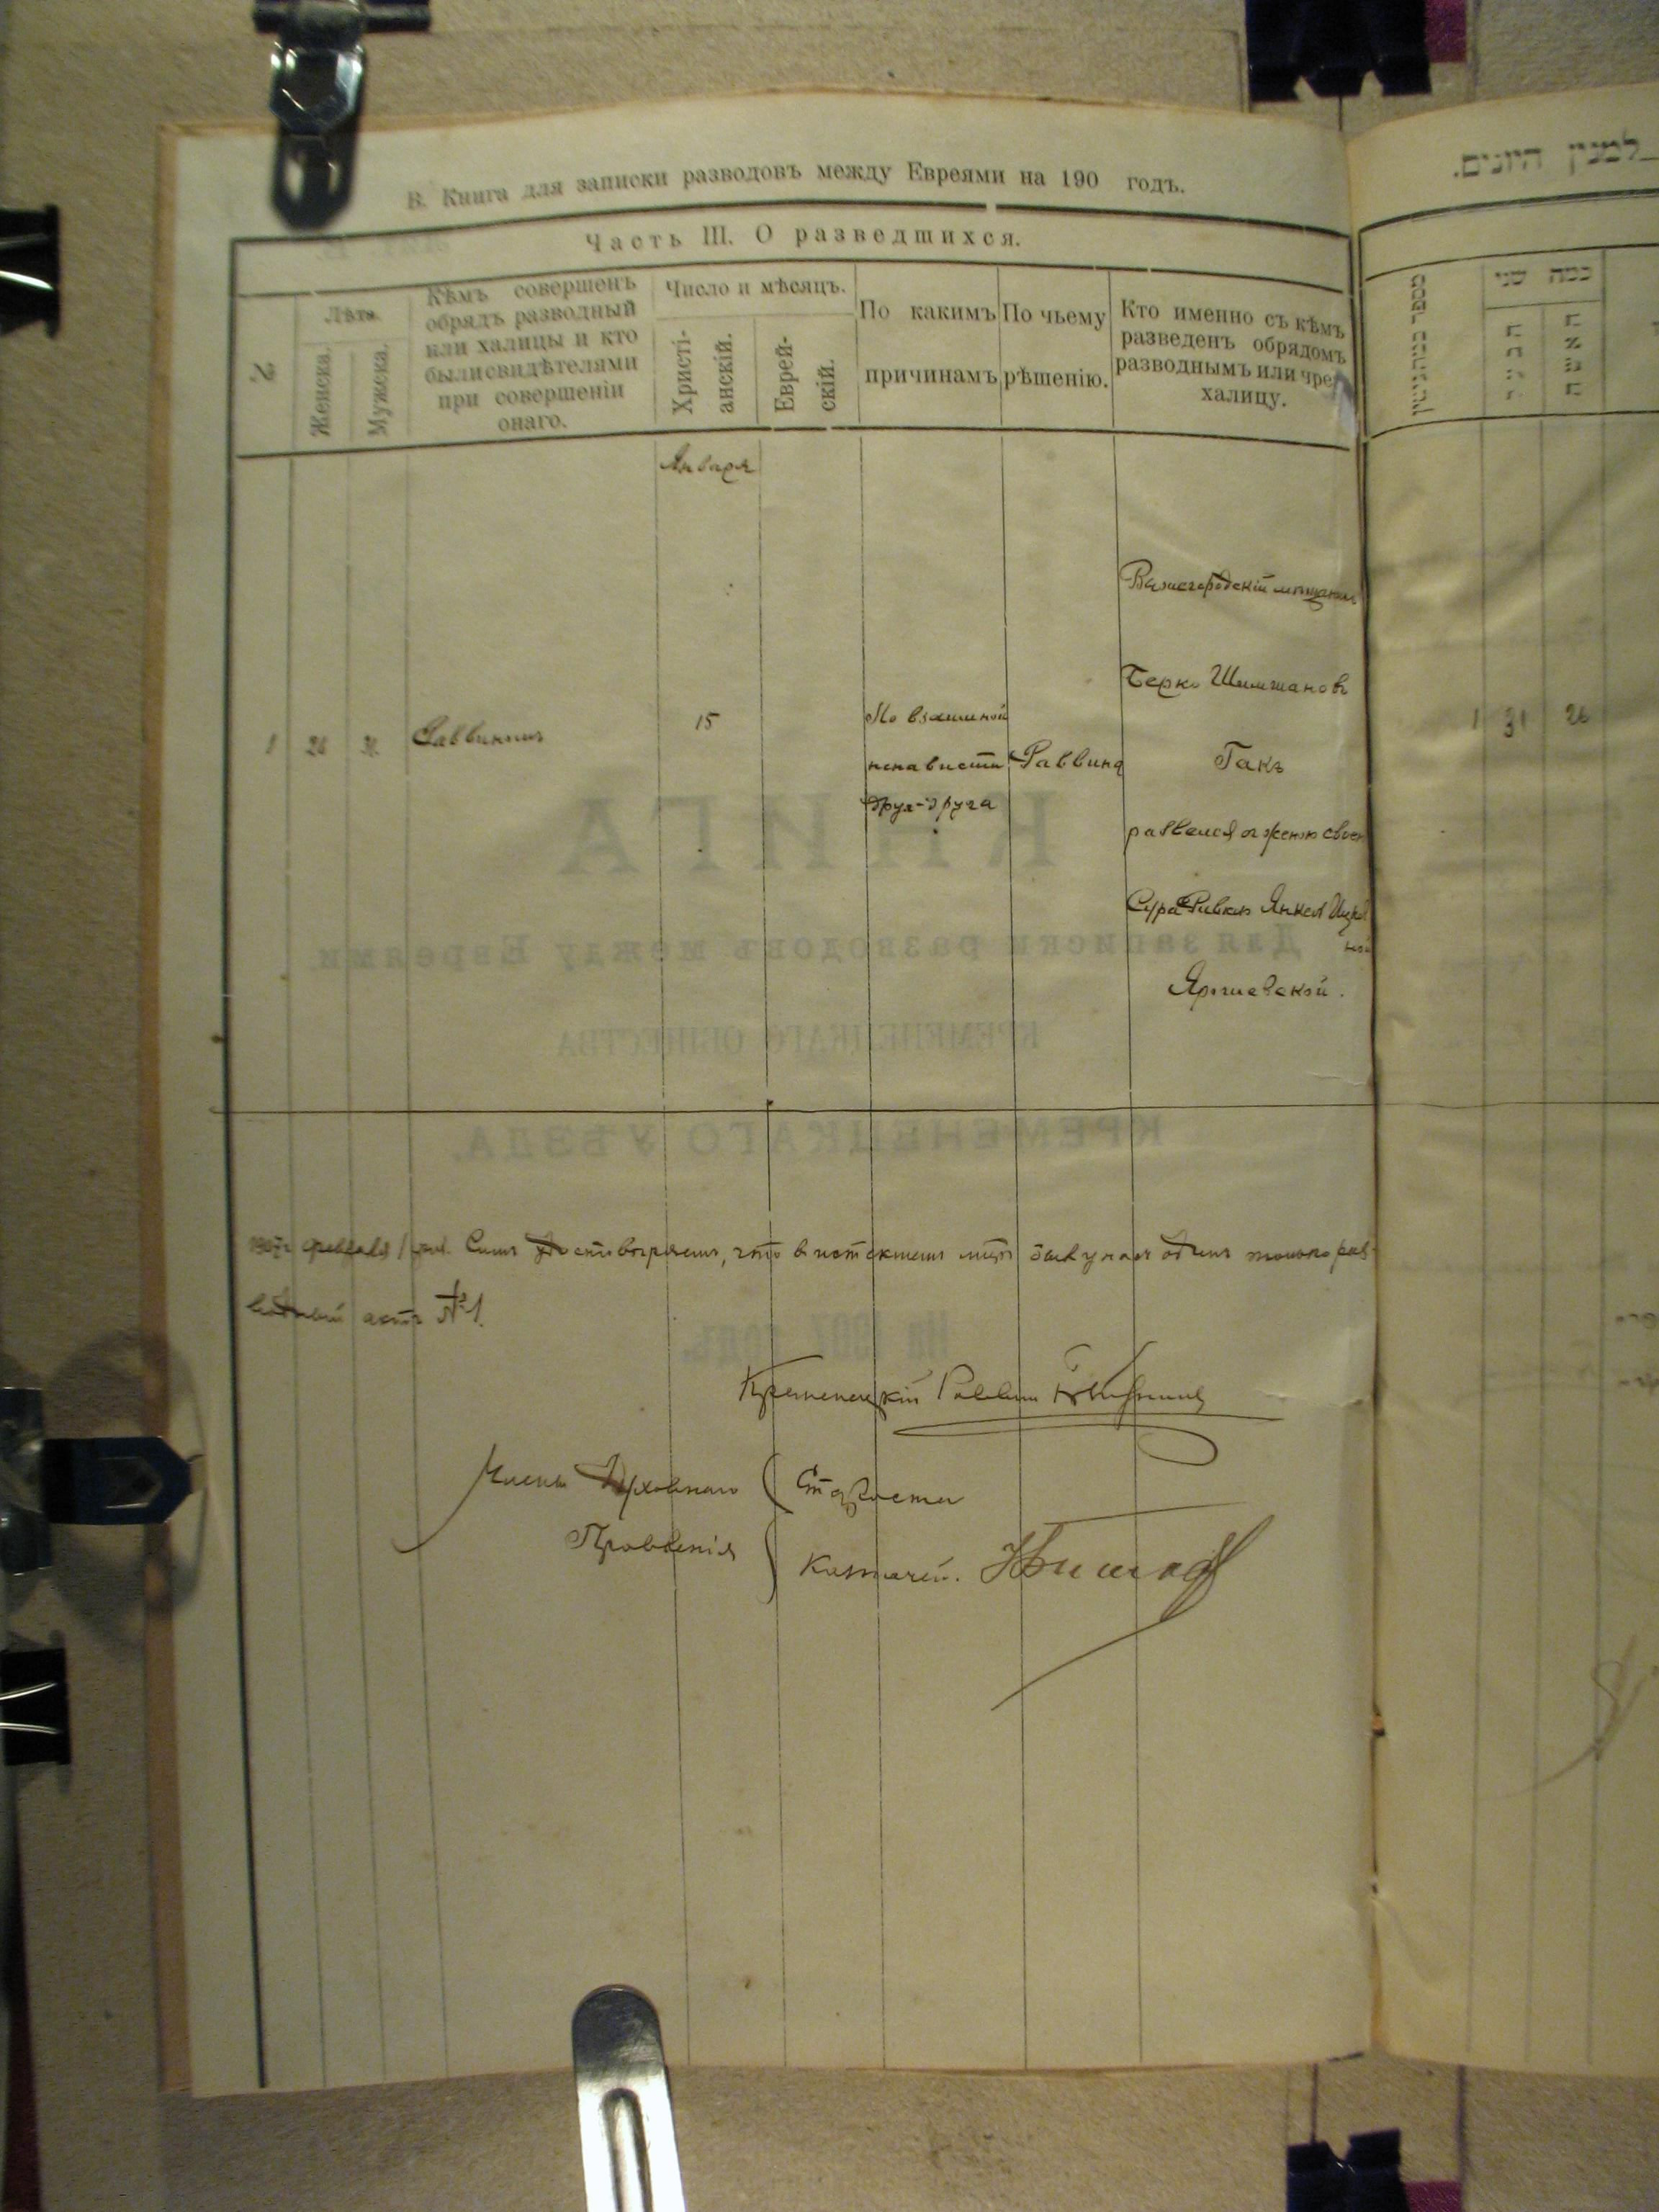 В. Книга для записки разводовъ между Евреями на 190 годъ.
Часть III. О разведшихся.
№
Лѣта.
Женска.
Мужска.
Кѣмъ совершенъ
обрядъ разводный
или халицы и кто
были свидѣтелями
при совершеніи
онаго.
Число и мѣсяцъ.
Христі-
анскій.
Еврей-
скій.
По какимъ
причинамъ
По чьему
рѣшенію.
Кто именно съ кѣмъ
разведенъ обрядомъ
разводнымъ или чрез
халицу.
Января
1
26
31
Раввиномъ
15
По взаимной
ненависти
друг-друга
Раввина
мѣщанин
Берко Шимшановъ
Гакъ
развелся съ женою своею
Сура Ривкою Янкел
ной
1907 г. февраля 1 дня. Симъ достовѣряемъ, что в истекшем мѣс. был у нас один только раз-
водный актъ №1.
Кременецкій Раввин
Члены Духовнаго
Правленія
Староста
Казначей.
למנין היונים.
כמה שני
האשה
1
31
26
КНИГА
Для записки разводовъ между Евреями
КРЕМЕНЕЦКАГО ОБЩЕСТВА
КРЕМЕНЕЦКАГО УѢЗДА.
На 1907 годъ.